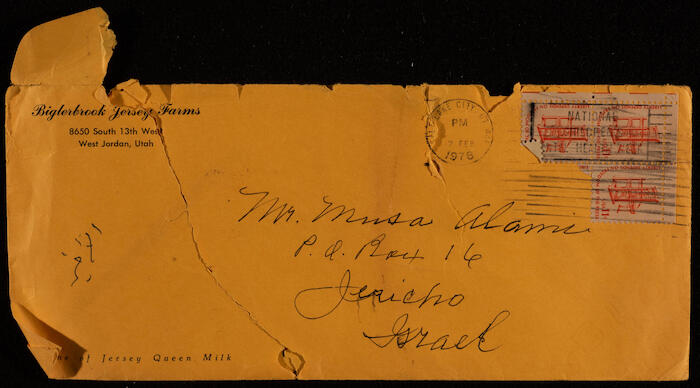 Biglerbrook Jersey Farms
8650 South 13th West
West Jordan, Utah
LAKE CITY, UT
PM
FEB
1976
NATIONAL
CHILDREN
HEALTH
11
Mr. Musa Alami
P.O. Box 16
Jericho
Israel
of Jersey Queen Milk